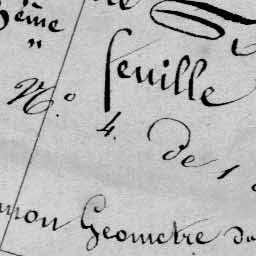 3ème
feuille
"
N.° 4. de 1
Geometre du